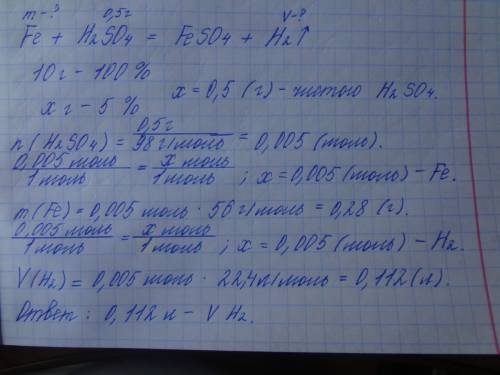 m-? 0,5г V-?
Fe + H2SO4 = FeSO4 + H2↑
10 г - 100 %
x г - 5 %
x = 0,5 (г) - чистого H2SO4.
n(H2SO4) = 0,5г / 98 г/моль = 0,005 (моль).
0,005 моль / 1 моль = x моль / 1 моль ; x = 0,005 (моль) - Fe.
m(Fe) = 0,005 моль · 56 г/моль = 0,28 (г).
0,005 моль / 1 моль = x моль / 1 моль ; x = 0,005 (моль) - H2.
V(H2) = 0,005 моль · 22,4 л/моль = 0,112 (л).
Ответ : 0,112 л - V H2.